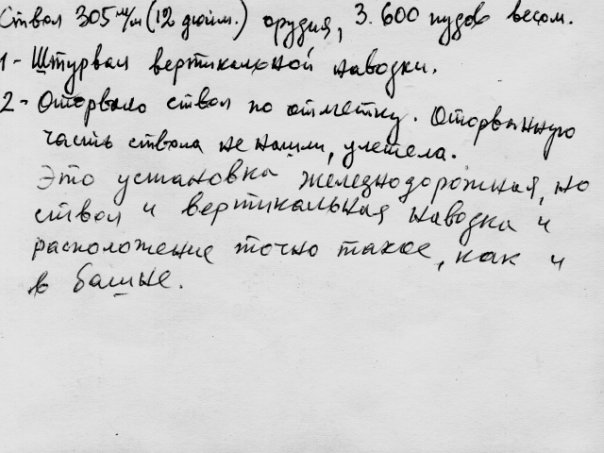 Ствол 305 м/м (12 дюйм.) орудия, 3.600 пудов весом.
1 - Штурвал вертикальной наводки.
2 - Оторвало ствол по отметку. Оторванную
часть ствола не нашли, улетела.
Это установка железнодорожная, но
ствол и вертикальная наводка и
расположение точно такое, как и
в башне.